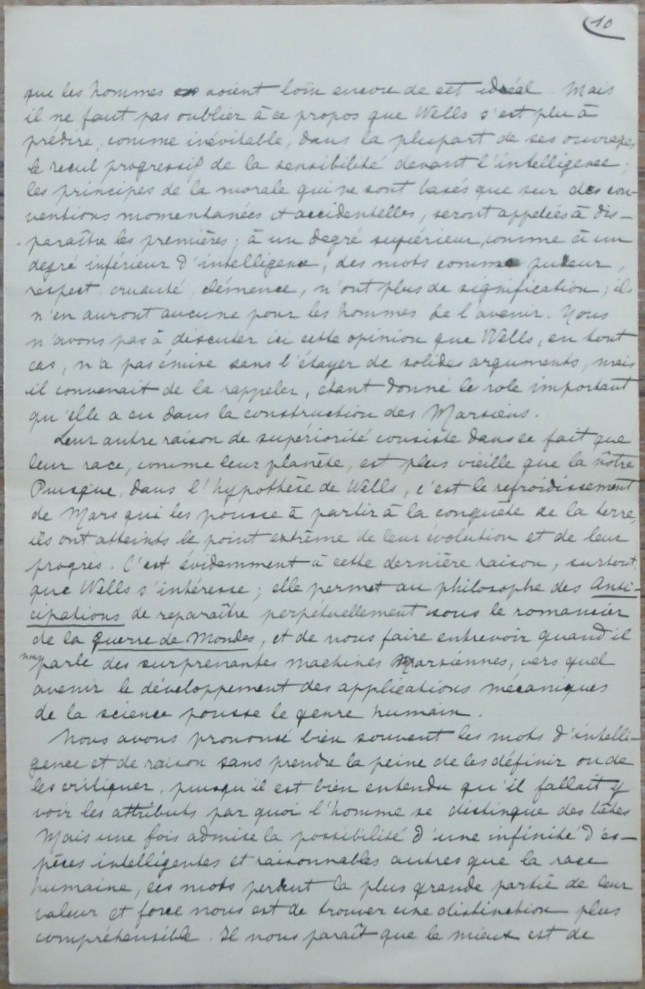 10
que les hommes soient loin encore de cet idéal. Mais
il ne faut pas oublier à ce propos que Wells s'est plu à
prédire, comme inévitable, dans la plupart de ses ouvrages
le recul progressif de la sensibilité devant l'intelligence ;
les principes de la morale qui ne sont basés que sur des con-
ventions momentanées et accidentelles, seront appelées à dis-
paraître les premières ; à un degré supérieur, comme à un
degré inférieur d'intelligence, des mots comme pudeur,
respect, cruauté, clémence, n'ont plus de signification ; ils
n'en auront aucune pour les hommes de l'avenir. Nous
n'avons pas à discuter ici cette opinion que Wells, en tout
cas, n'a pas émise sans l'étayer de solides arguments, mais
il convenait de la rappeler, étant donné le role important
qu'elle a eu dans la construction des Marsiens.
Leur autre raison de supériorité consiste dans ce fait que
leur race, comme leur planète, est plus vieille que la nôtre
Puisque, dans l'hypothèse de Wells, c'est le refroidissement
de Mars qui les pousse à partir à la conquête de la terre,
ils ont atteints le point extrême de leur évolution et de leur
progres. C'est évidemment à cette dernière raison, surtout,
que Wells s'intéresse ; elle permet au philosophe des Anti-
cipations de reparaître perpétuellement sous le romancier
de la guerre des Mondes, et de nous faire entrevoir quand il
nous parle des surprenantes machines Marsiennes, vers quel
avenir le développement des applications mécaniques
de la science pousse le genre humain.
Nous avons prononcé bien souvent les mots d'intelli-
gence et de raison sans prendre la peine de les définir ou de
les critiquer, puisqu'il est bien entendu qu'il fallait y
voir les attributs par quoi l'homme se distingue des bêtes
Mais une fois admise la possibilité d'une infinité d'es-
pèces intelligentes et raisonnables autres que la race
humaine, ces mots perdent la plus grande partie de leur
valeur et force nous est de trouver une distinction plus
compréhensible. Il nous paraît que le mieux est de